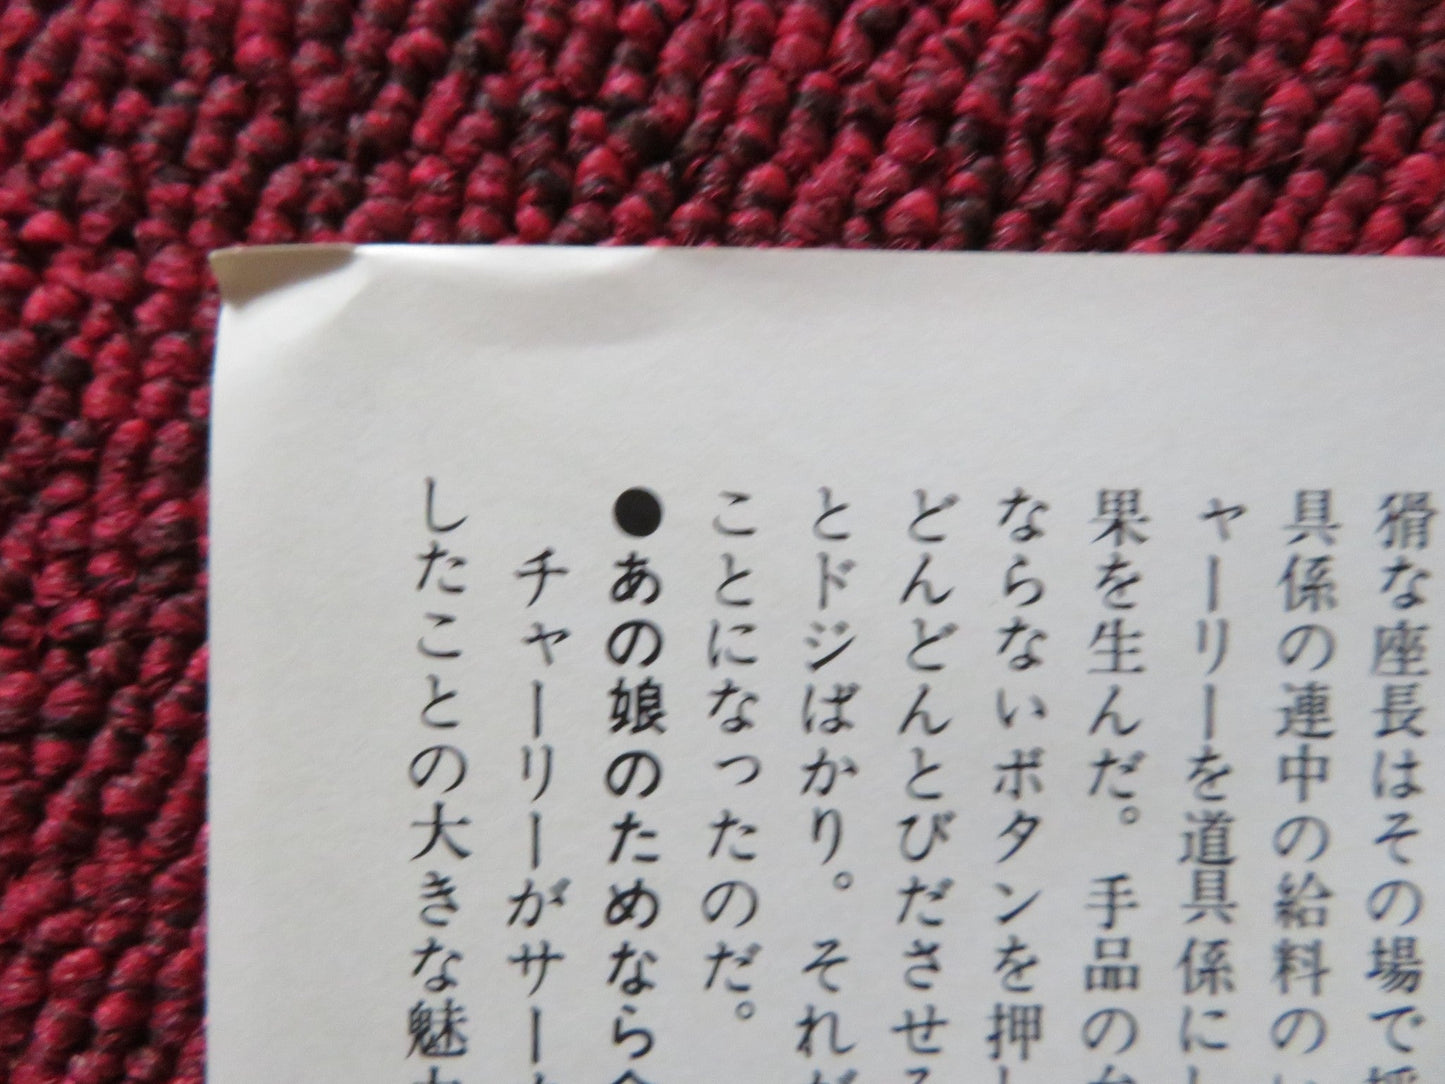 猾な座長はその場で
具係の連中の給料の
ャーリーを道具係に
果を生んだ。手品の
ならないボタンを押
どんどんとびださせ
とドジばかり。それ
ことになったのだ。
●あの娘のためなら
チャーリーがサー
したことの大きな魅